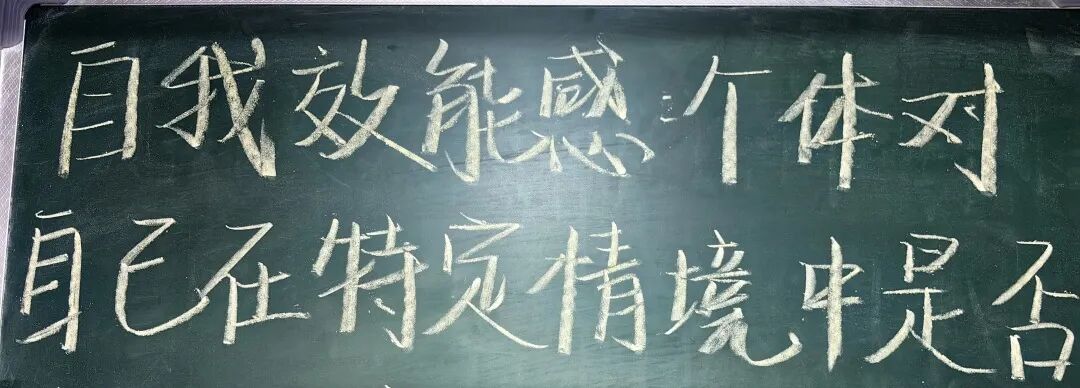 自我效能感:个体对
自己在特定情境中是否